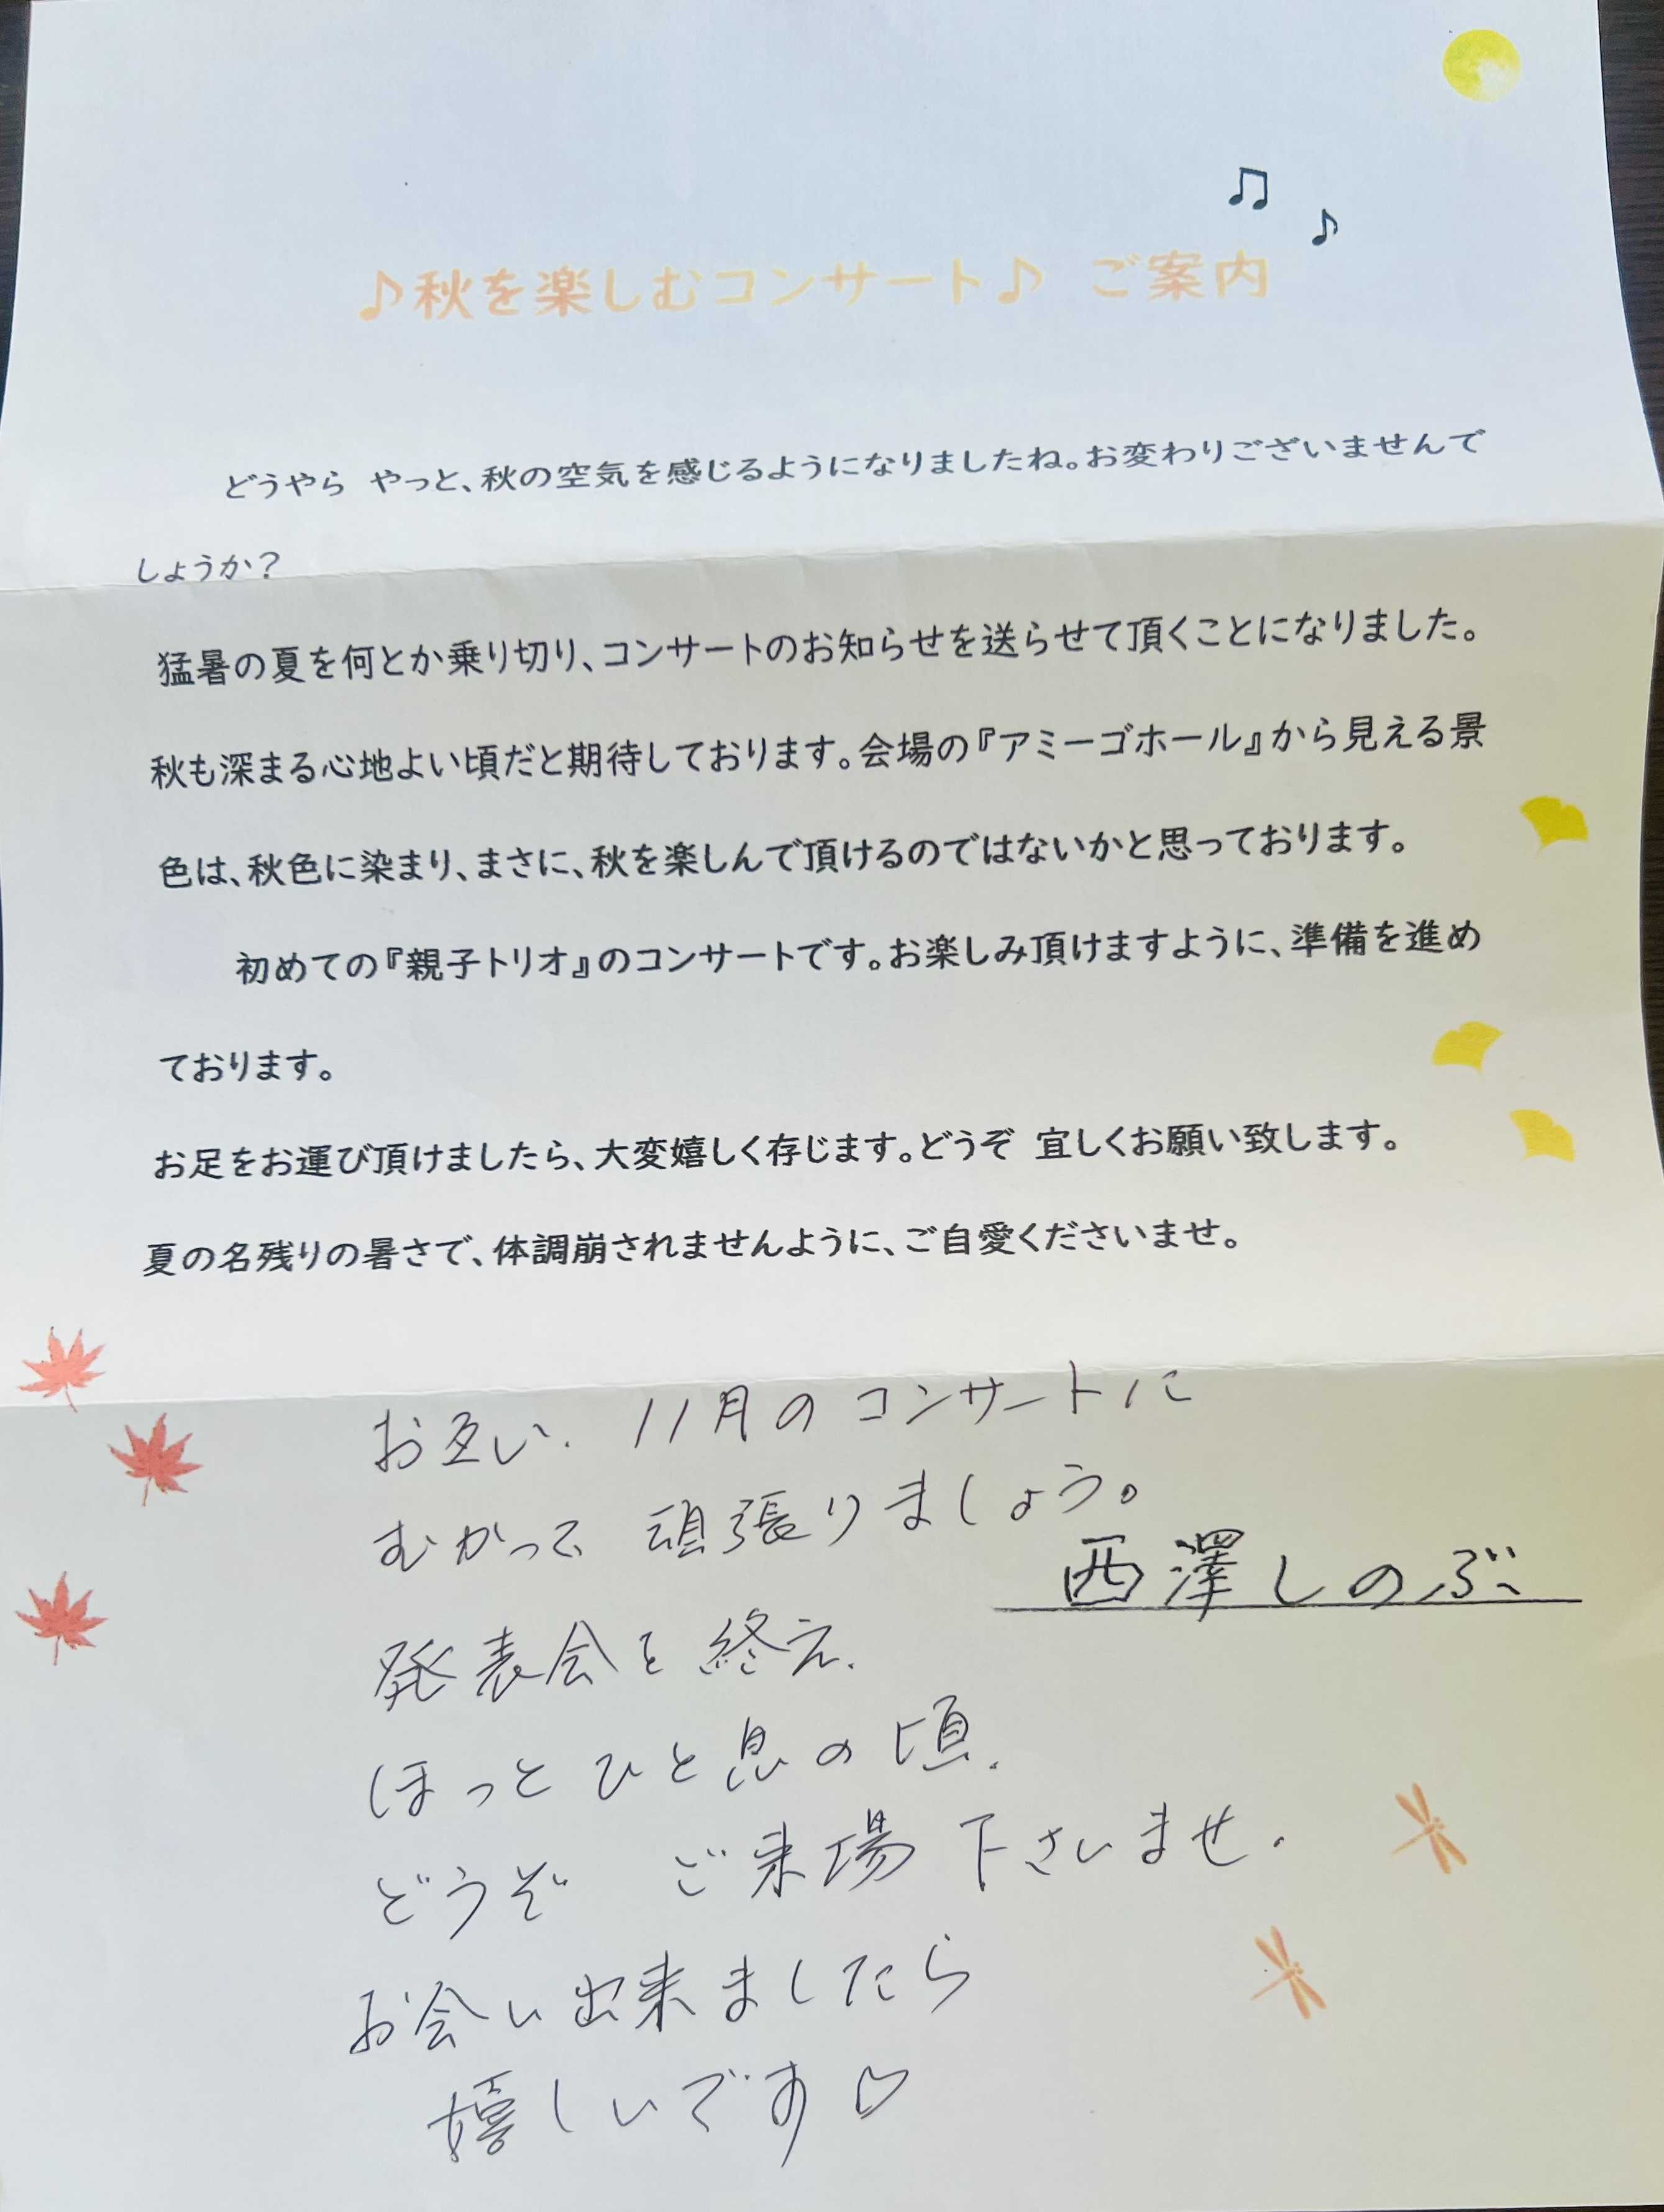 ♪秋を楽しむコンサート♪　ご案内
どうやら　やっと、秋の空気を感じるようになりましたね。お変わりございませんで
しょうか？
猛暑の夏を何とか乗り切り、コンサートのお知らせを送らせて頂くことになりました。
秋も深まる心地よい頃だと期待しております。会場の『アミーゴホール』から見える景
色は、秋色に染まり、まさに、秋を楽しんで頂けるのではないかと思っております。
初めての『親子トリオ』のコンサートです。お楽しみ頂けますように、準備を進め
ております。
お足をお運び頂けましたら、大変嬉しく存じます。どうぞ　宜しくお願い致します。
夏の名残りの暑さで、体調崩されませんように、ご自愛くださいませ。
お互い、11月のコンサートに
むかって　頑張りましょう。
西澤しのぶ
発表会を終え、
ほっとひと息の頃、
どうぞ　ご来場下さいませ。
お会い出来ましたら
嬉しいです♡